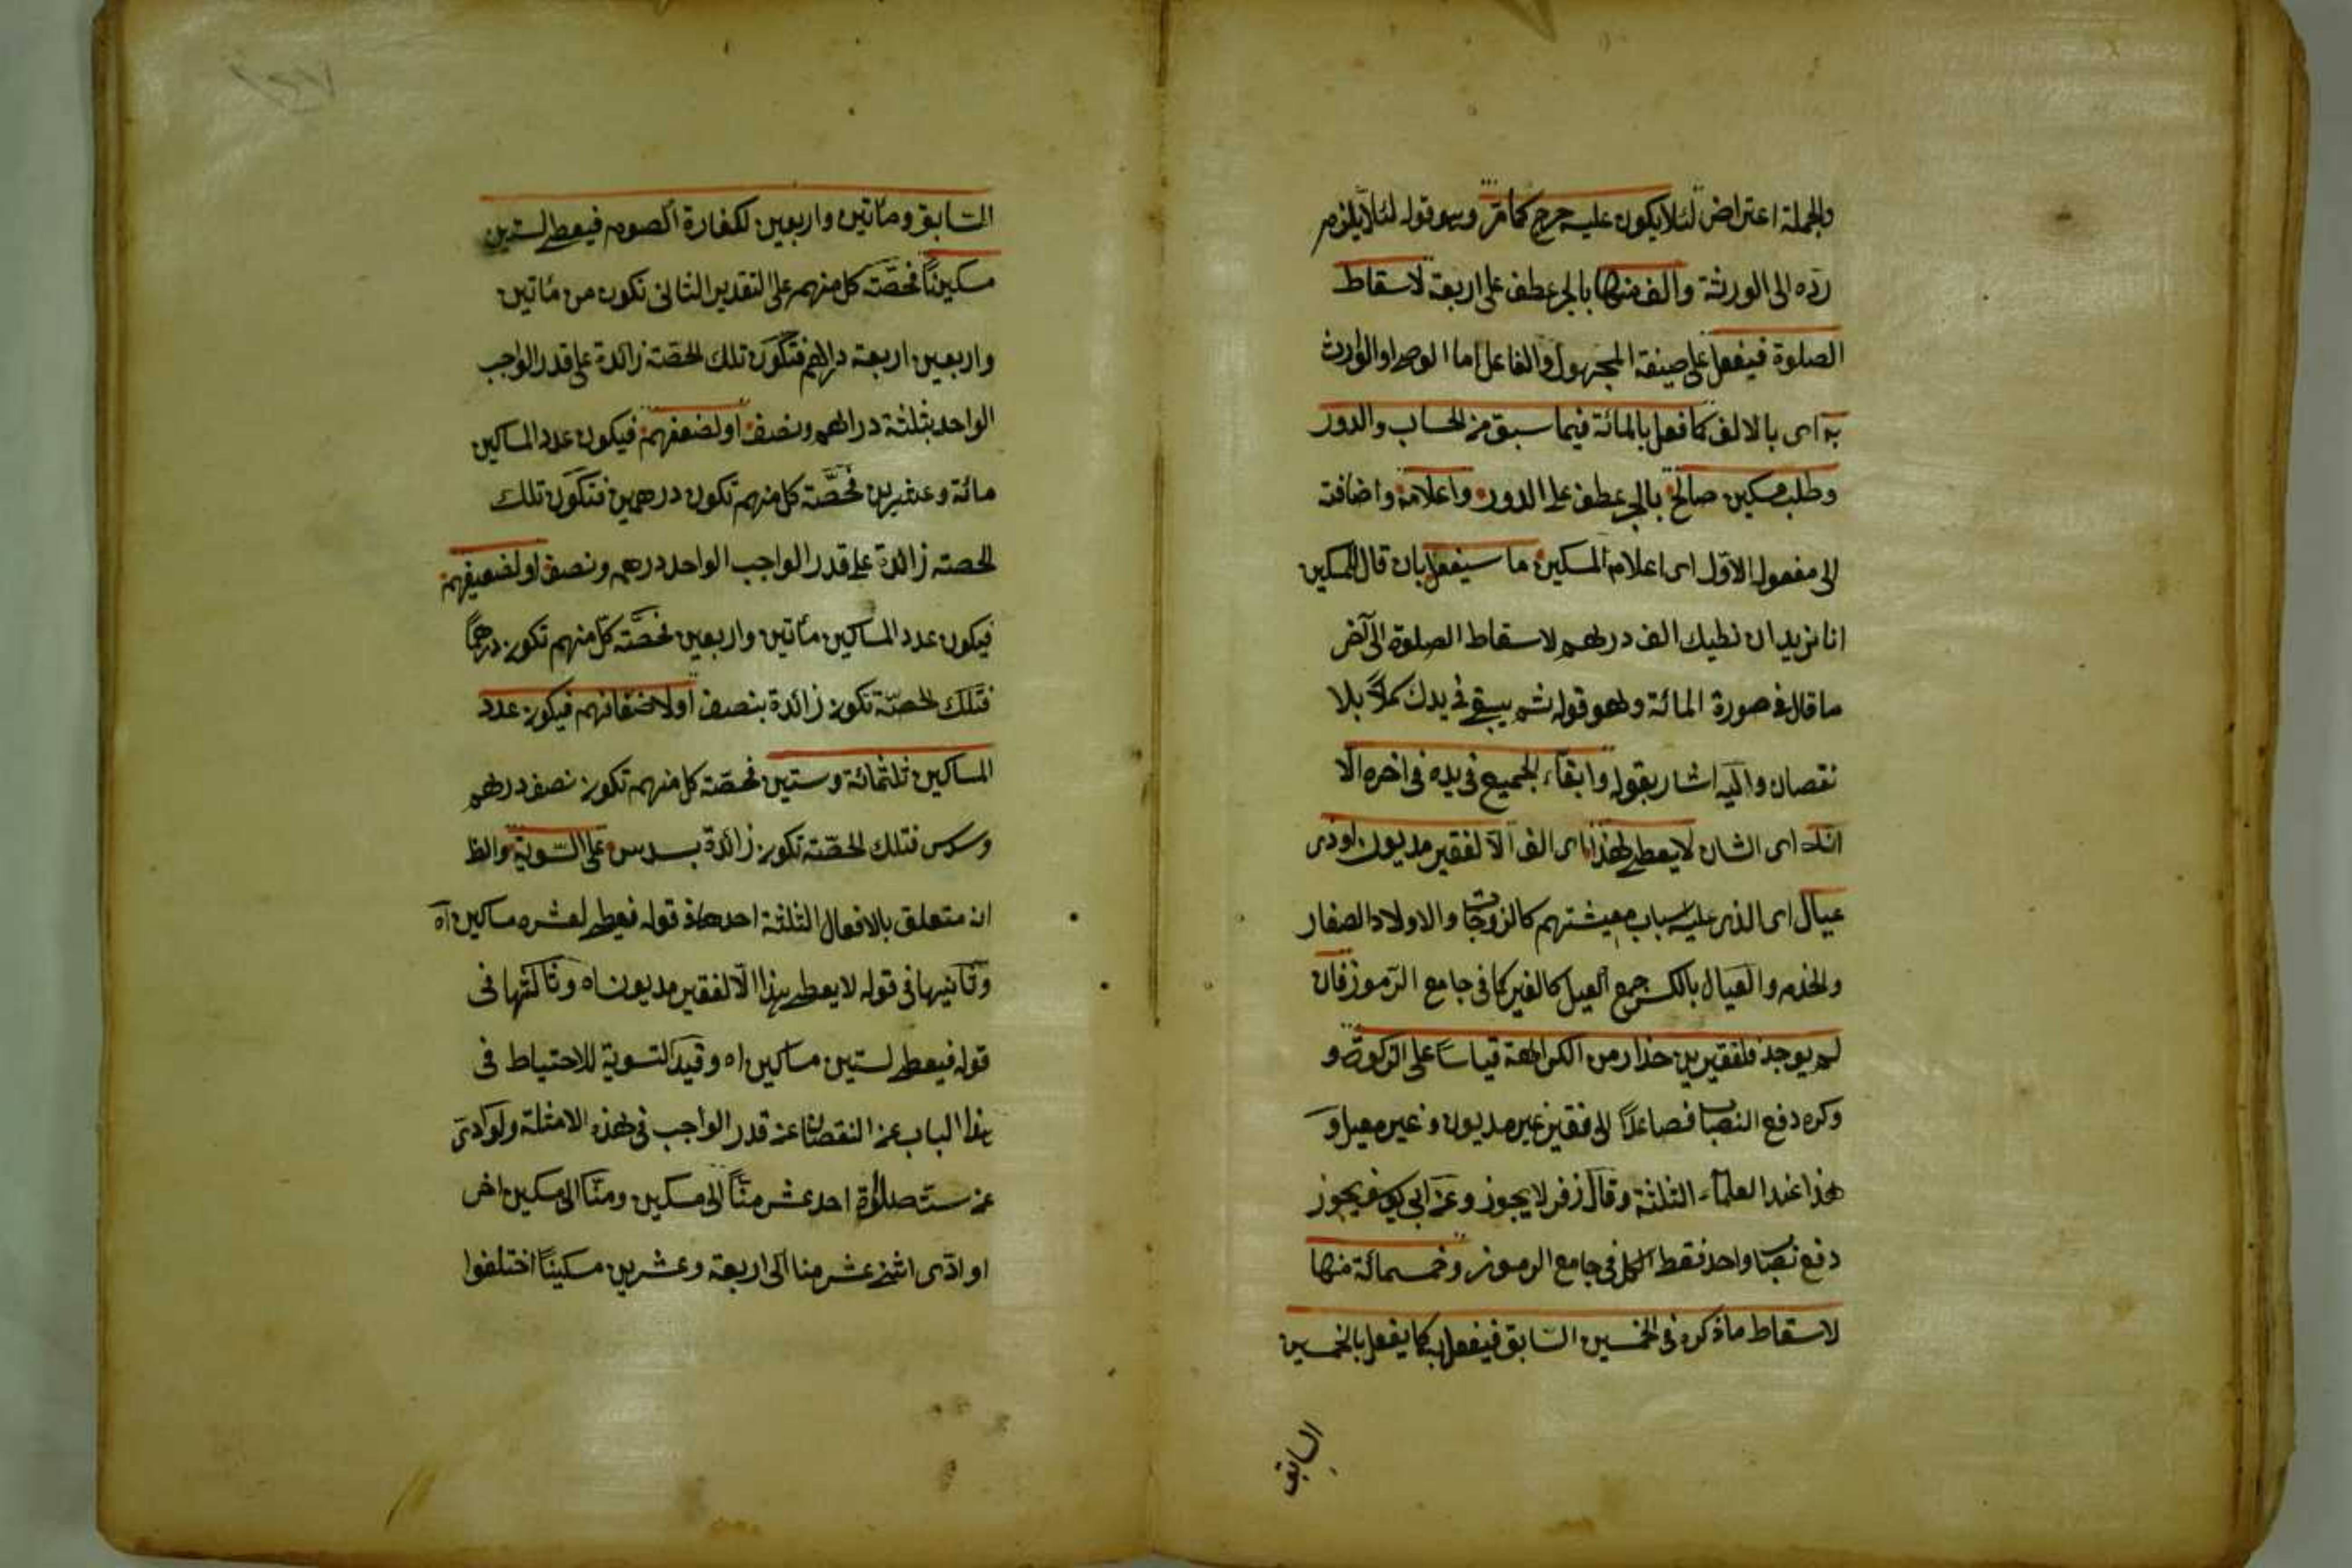 والجملة اعتراض لئلا يكون عليه حرج كما مر وهو قوله لئلا يلزم
رده الى الورثة والف منها بالجر عطف على اربعة لاسقاط
الصلوة فيفعل على صيغة المجهول والفاعل اما الوصى او الوارث
به اى بالالف كما فعل بالمائة فيما سبق من الحساب والدور
وطلب مسكين صالح بالجر عطف على الدور واعلامه واضافته
الى مفعول الاول اى اعلام المسكين ما سيفعل بان قال للمسكين
انا نريد ان نطيك الف درهم لاسقاط الصلوة الى آخر
ما قال فى صورة المائة وهو قوله ثم يبقى فى يدك كملا بلا
نقصان واليه اشار بقوله وابقاء الجميع فى يده فى اخره الا
انه اى الشان لا يعطى هذا اى الف الا لفقير مديون او ذى
عيال اى الذى عليه اسباب معيشتهم كالزوجات والاولاد الصغار
والخدم والعيال بالكسر جمع العيل كالغير كما فى جامع الرموز فان
لم يوجد فلفقيرين حذار من الكراهة قياسا على الزكوة و
وكره دفع النصاب فصاعدا الى فقير غير مديون وغير معيل و
هذا عند العلماء الثلثة وقال زفر لا يجوز وعن ابى يوسف يجوز
دفع نصاب واحد فقط الكل فى جامع الرموز وخمسمائة منها
لاسقاط ما ذكره فى الخمسين السابق فيفعل به كما يفعل بالخمسين
السابق
السابق ومأتين واربعين لكفارة الصوم فيعطى لستين
مسكينا فحصّة كل منهم على التقدير الثانى تكون من مأتين
واربعين اربعة دراهم فتكون تلك الحصّة زائدة على قدر الواجب
الواحد بثلثة دراهم ونصف او لضعفهم فيكون عدد المساكين
مائة وعشرين فحصّة كل منهم تكون درهمين فتكون تلك
الحصته زائدة على قدر الواجب الواحد درهم ونصف او لضعيفهم
فيكون عدد المساكين مأتين واربعين فحصّة كل منهم تكون درهمًا
فتلك الحصّة تكون زائدة بنصف او لاضعافهم فيكون عدد
المساكين ثلثمائة وستين فحصّة كل منهم تكون نصف درهم
وسدس فتلك الحصّته تكون زائدة بسدس على السّوية والظ
ان متعلق بالافعال الثلثة احدها فى قوله فيعطى لعشره مساكين اه
وثانيها فى قوله لا يعطى هذا الّا لفقير مديون اه وثالثها فى
قوله فيعطى لستين مساكين اه وقيد التسوية للاحتياط فى
هذا الباب عن النقصان عن قدر الواجب فى هذه الامثلة ولو ادى
عن ست صلوة احد عشر منّا الى مسكين ومنّا الى مسكين اخر
او ادّى اثنى عشر منا الى اربعة وعشرين مسكينًا اختلفوا